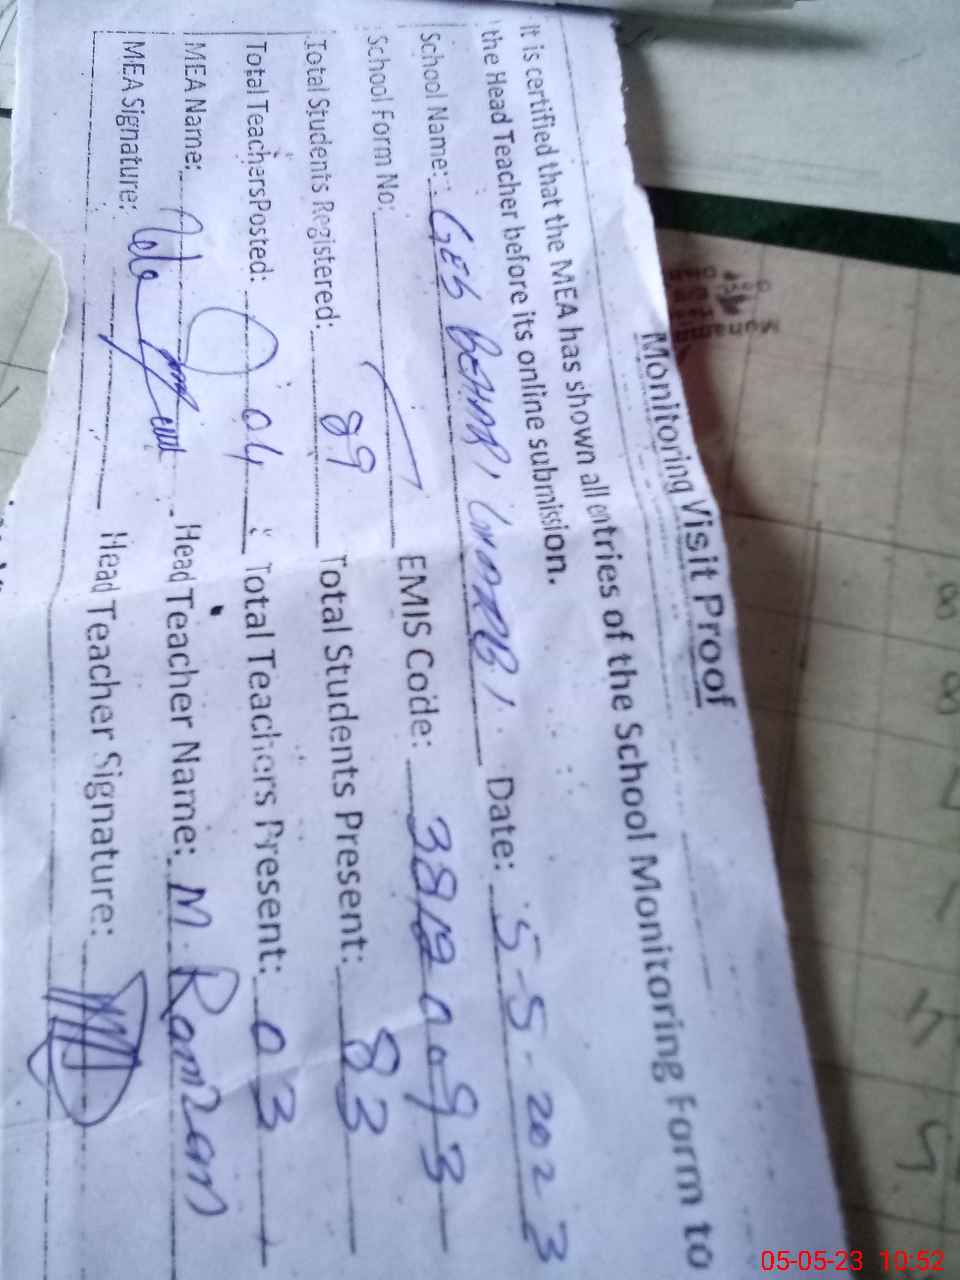 Monitoring Visit Proof
It is certified that the MEA has shown all entries of the School Monitoring Form to
the Head Teacher before its online submission.
School Name: Date: 5-5-2023
School Form No: EMIS Code: 38120093
Total Students Registered: 89 Total Students Present: 83
Total Teachers Posted: 04 Total Teachers Present: 03
MEA Name: Head Teacher Name: M. Ramzan
MEA Signature: Head Teacher Signature:
8
8
4
5
05-05-23 10:52